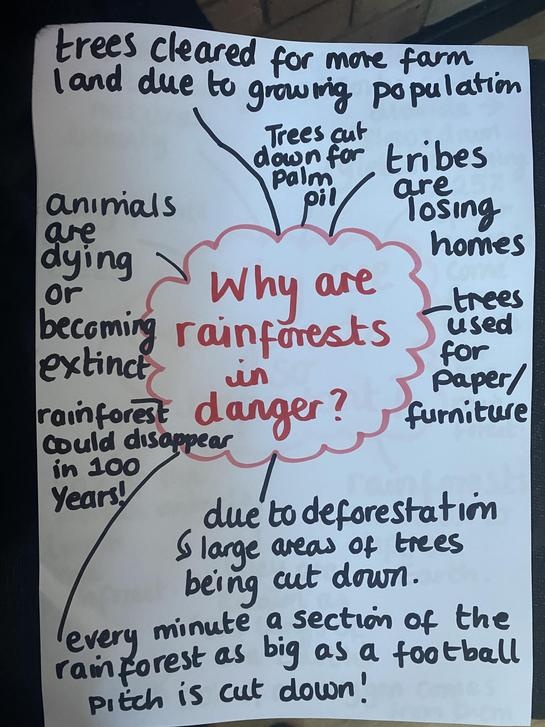 trees cleared for more farm
land due to growing population
Trees cut
down for
palm
pil
tribes
are
losing
homes
animals
are
dying
or
becoming
extinct
Why are
rainforests
in
danger?
trees
used
for
paper/
furniture
rainforest
could disappear
in 100
years!
due to deforestation
↳ large areas of trees
being cut down.
every minute a section of the
rainforest as big as a football
pitch is cut down!